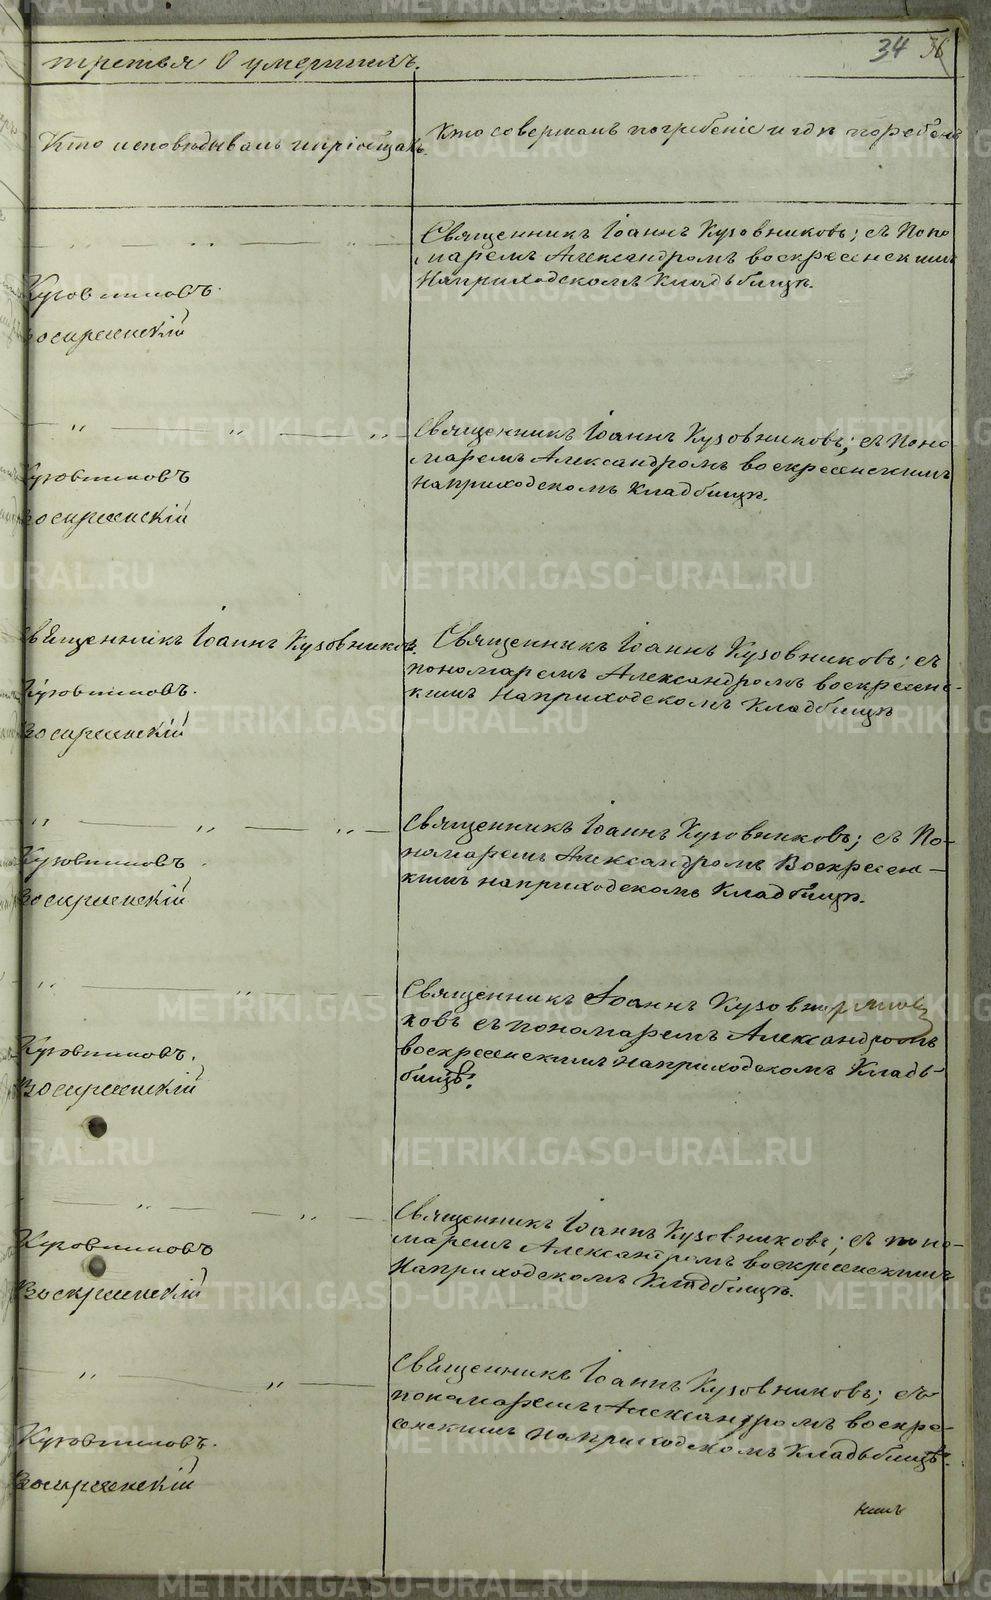 третья О умершихъ.
34 36
Кто исповѣдывалъ и пріобщалъ.
Кто совершалъ погребеніе и гдѣ погребены
Священникъ Іоаннъ Кузовниковъ; съ Поно
маремъ Александромъ воскресенскимъ
На приходскомъ Кладьбищѣ.
Кузовниковъ.
Воскресенскій
Священникъ Іоаннъ Кузовниковъ; съ Поно
маремъ Александромъ воскресенскимъ
на приходскомъ Кладбищѣ.
Кузовниковъ
Воскресенскій
Священникъ Іоаннъ Кузовниковъ.
Священникъ Іоаннъ Кузовниковъ; съ
пономаремъ Александромъ воскресенс-
кимъ на приходскомъ Кладбищѣ
Кузовниковъ.
Воскресенскій
Священникъ Іоаннъ Кузовниковъ; съ По-
номаремъ Александромъ Воскресен-
кимъ на приходскомъ Кладбищѣ.
Кузовниковъ
Воскресенскій
Священникъ Іоаннъ Кузовни
ковъ съ пономаремъ Александромъ
воскресенскимъ на приходскомъ Кладь-
бищѣ.
Кузовниковъ.
Воскресенскій
Священникъ Іоаннъ Кузовниковъ; съ поно-
маремъ Александромъ воскресенскимъ
На приходскомъ Кладбищѣ.
Кузовниковъ
Воскресенскій
Священникъ Іоаннъ Кузовниковъ; съ
пономаремъ Александромъ воскре-
сенскимъ на приходскомъ Кладьбищѣ.
Кузовниковъ.
Воскресенскій
METRIKI.GASO-URAL.RU